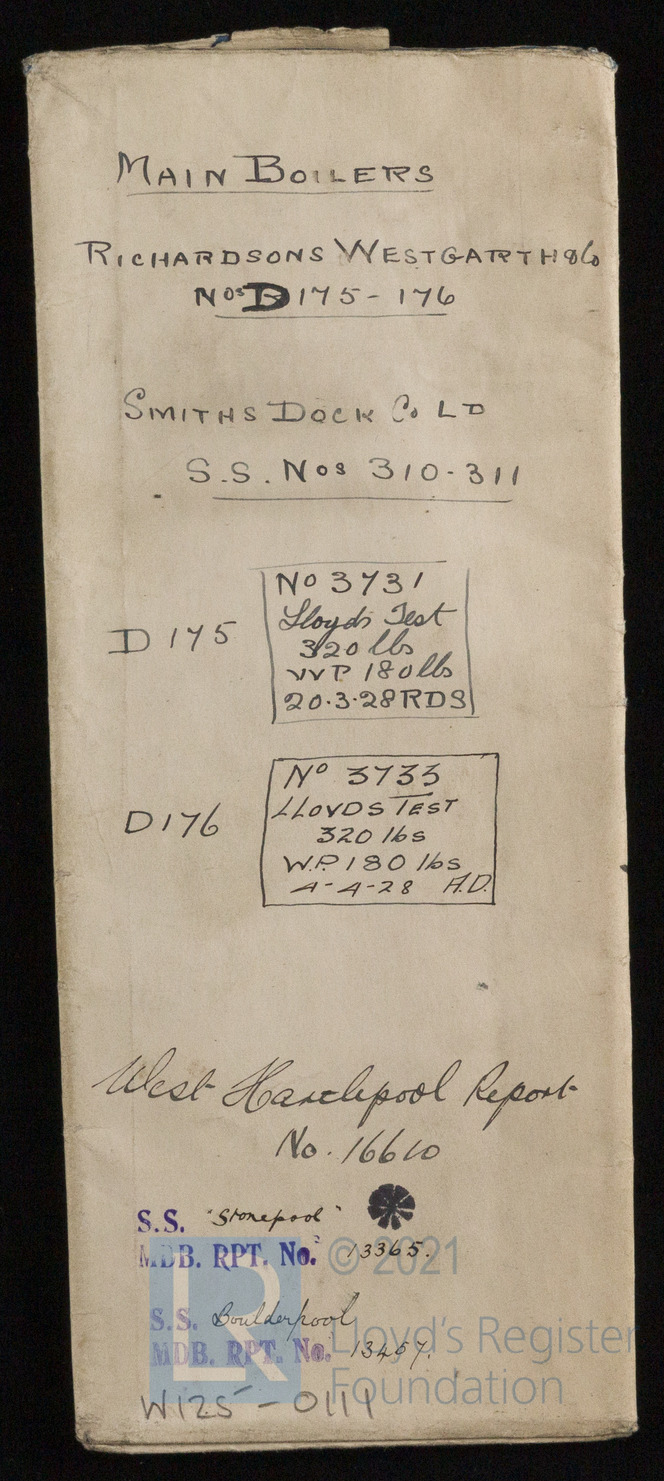 MAIN BOILERS
RICHARDSONS WESTGARTH & Co
Nos D175 - 176
SMITHS DOCK Co LD
S.S. Nos 310-311
No 3731
Lloyds Test
320 lbs
WP 180 lbs
20.3.28 RDS
D 175
No 3733
LLOYDS TEST
320 lbs
W.P. 180 lbs
4-4-28 A.D.
D176
West Hartlepool Report
No. 16610
S.S. "Stonepool"
MDB. RPT. No. 13365.
© 2021
S.S. Boulderpool
MDB. RPT. No. 13457.
LR
Lloyd's Register
Foundation
W125-0111